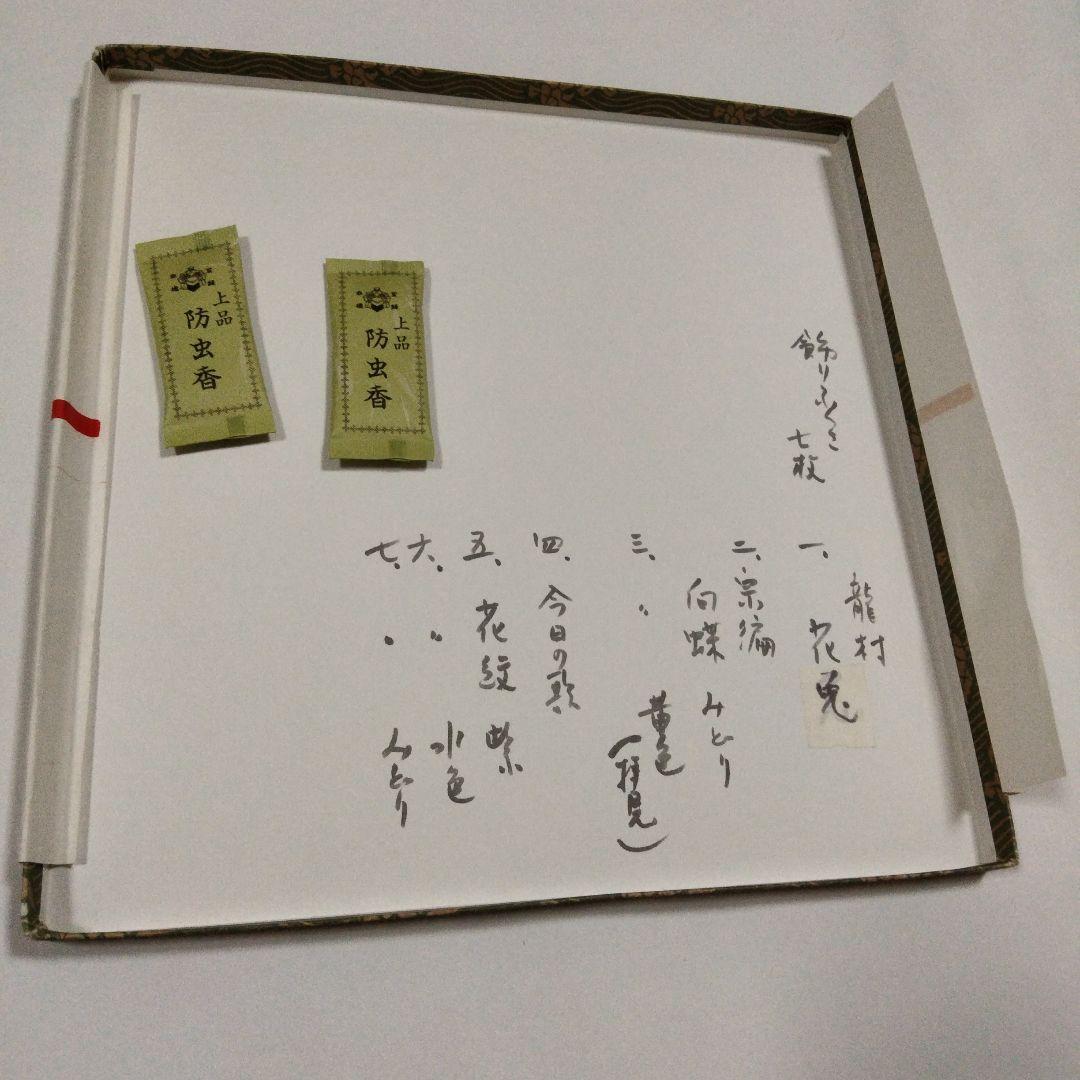 飾りふくさ
七枚
龍村
一、花兎
二、宗徧
向蝶 みどり
三、〃 黄色
(拝見)
四、今日の
五、花紋 紫
六、〃 水色
七、〃 みどり
上品
防虫香
上品
防虫香